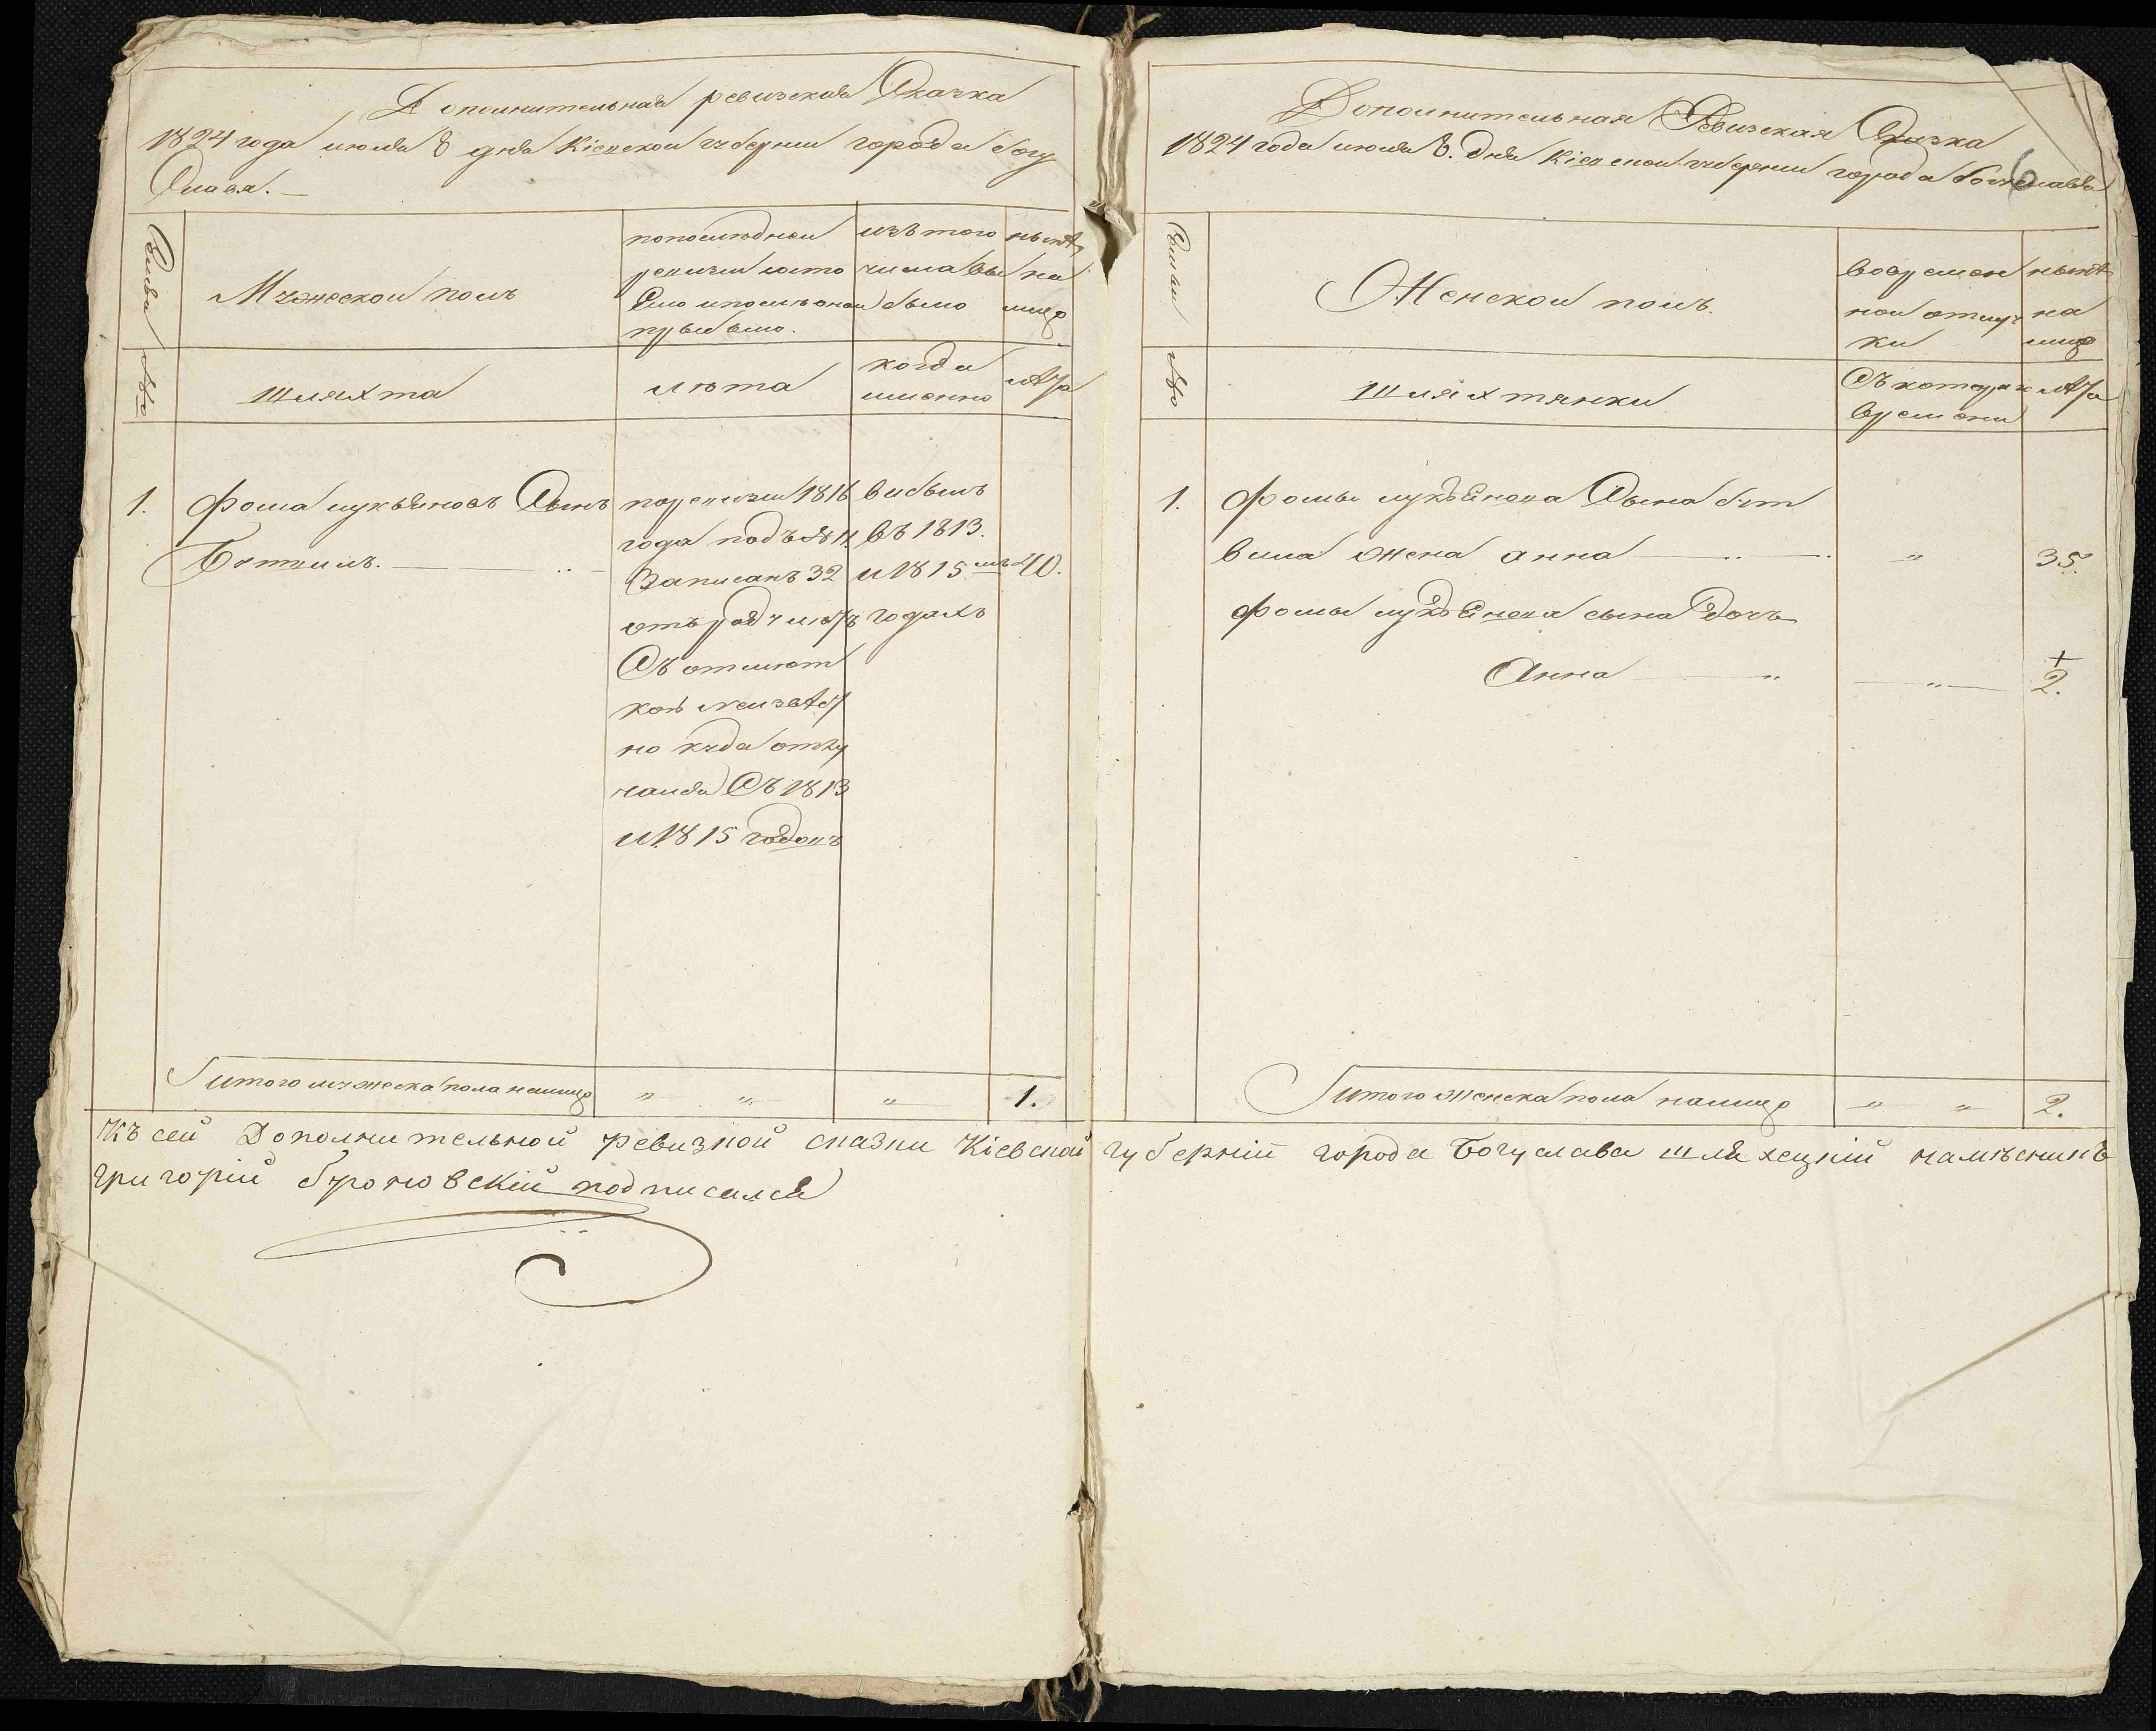 Дополнительная ревизская Сказка
1824 года июля 8 дня Кіевской губернии города Богу
Слава.
Семьи
Мужеской полъ
по последней
ревизии состо
яло и после оной
прибыло.
изъ того
числа вы
было
ныне
на
лицо
№о
шляхта
лета
когда
именно
лета
1. Фома лукьяновъ Сынъ
по ревизии 1816
выбылъ
года подъ № 11.
въ 1813.
записанъ 32
и 1815 мъ
40.
отъ роду летъ
годахъ
Съ отмет
кой неизвест
но куда отлу
чался Съ 1813
и 1815 годовъ
Итого мужеска пола налицо " " " 1.
Дополнительная Ревизская Сказка
1824 года июля 8. дня Кіевской губернии города Богуславля
6
Семьи
Женской полъ.
во времен
ной отлуч
ки
ныне
на
лицо
№о
шляхтянки
Съ которого
времени
лета
1. Фомы лукьянова Сына бут
вила жена анна " 35.
фомы лукьянова сына дочь
+
Анна " " 2.
Итого женска пола налицо " " 2.
Къ сей Дополнительной ревизкой сказки Кіевской губерніи города Богуслава шляхецкій намесникъ
григорій броновскій подписался